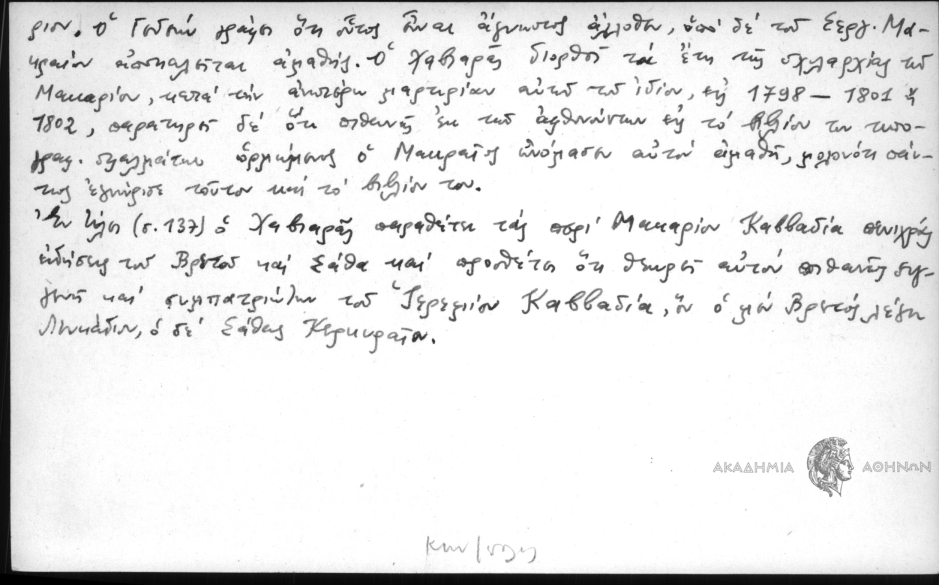 ριον. Ὁ Γεδεών γράφει ὅτι οὗτος εἶναι ἄγνωστος ἄλλοθεν, ὑπό δέ τοῦ Σεργ. Μα-
κραίου ἀποκαλεῖται ἀμαθής. Ὁ Χαβιαρᾶς διορθοῖ τά ἔτη τῆς σχολαρχίας τοῦ
Μακαρίου, κατά τήν ἀνωτέρω μαρτυρίαν αὐτοῦ τοῦ ἰδίου, εἰς 1798 – 1801 ἤ
1802, παρατηρεῖ δέ ὅτι πιθανῶς ἐκ τῶν ἀφθονούντων εἰς τό βιβλίον του τυπο-
γραφ. σφαλμάτων ὁρμώμενος ὁ Μακραῖος ὠνόμασεν αὐτόν ἀμαθῆ, μολονότι πάν-
τως ἐγνώρισε τοῦτον καί τό βιβλίον του.
Ἐν τέλει (σ. 137) ὁ Χαβιαρᾶς παραθέτει τάς περί Μακαρίου Καββαδία πενιχράς
εἰδήσεις τοῦ Βρετοῦ καί Σάθα καί προσθέτει ὅτι θεωρεῖ αὐτόν πιθανῶς συγ-
γενῆ καί συμπατριώτην τοῦ Ἱερεμίου Καββαδία, ὅν ὁ μέν Βρετός λέγει
Λευκάδιον, ὁ δέ Σάθας Κερκυραῖον.
ΑΚΑΔΗΜΙΑ ΑΘΗΝΩΝ